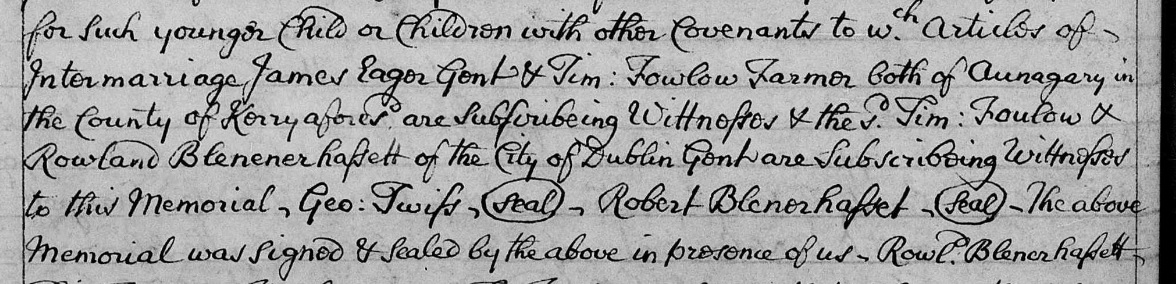 for such younger Child or Children with other Covenants to wch. Articles of
Intermarriage James Eager Gent & Tim: Fowlow Farmer both of Aunagary in
the County of Kerry aforesd. are Subscribeing Wittnesses & the sd. Tim: Foulow &
Rowland Blenenerhassett of the City of Dublin Gent are Subscribeing Wittnesses
to this Memorial, Geo: Twiss, (Seal) , Robert Blenerhasset , (Seal) , The above
Memorial was signed & sealed by the above in presence of us , Rowld. Blenerhassett